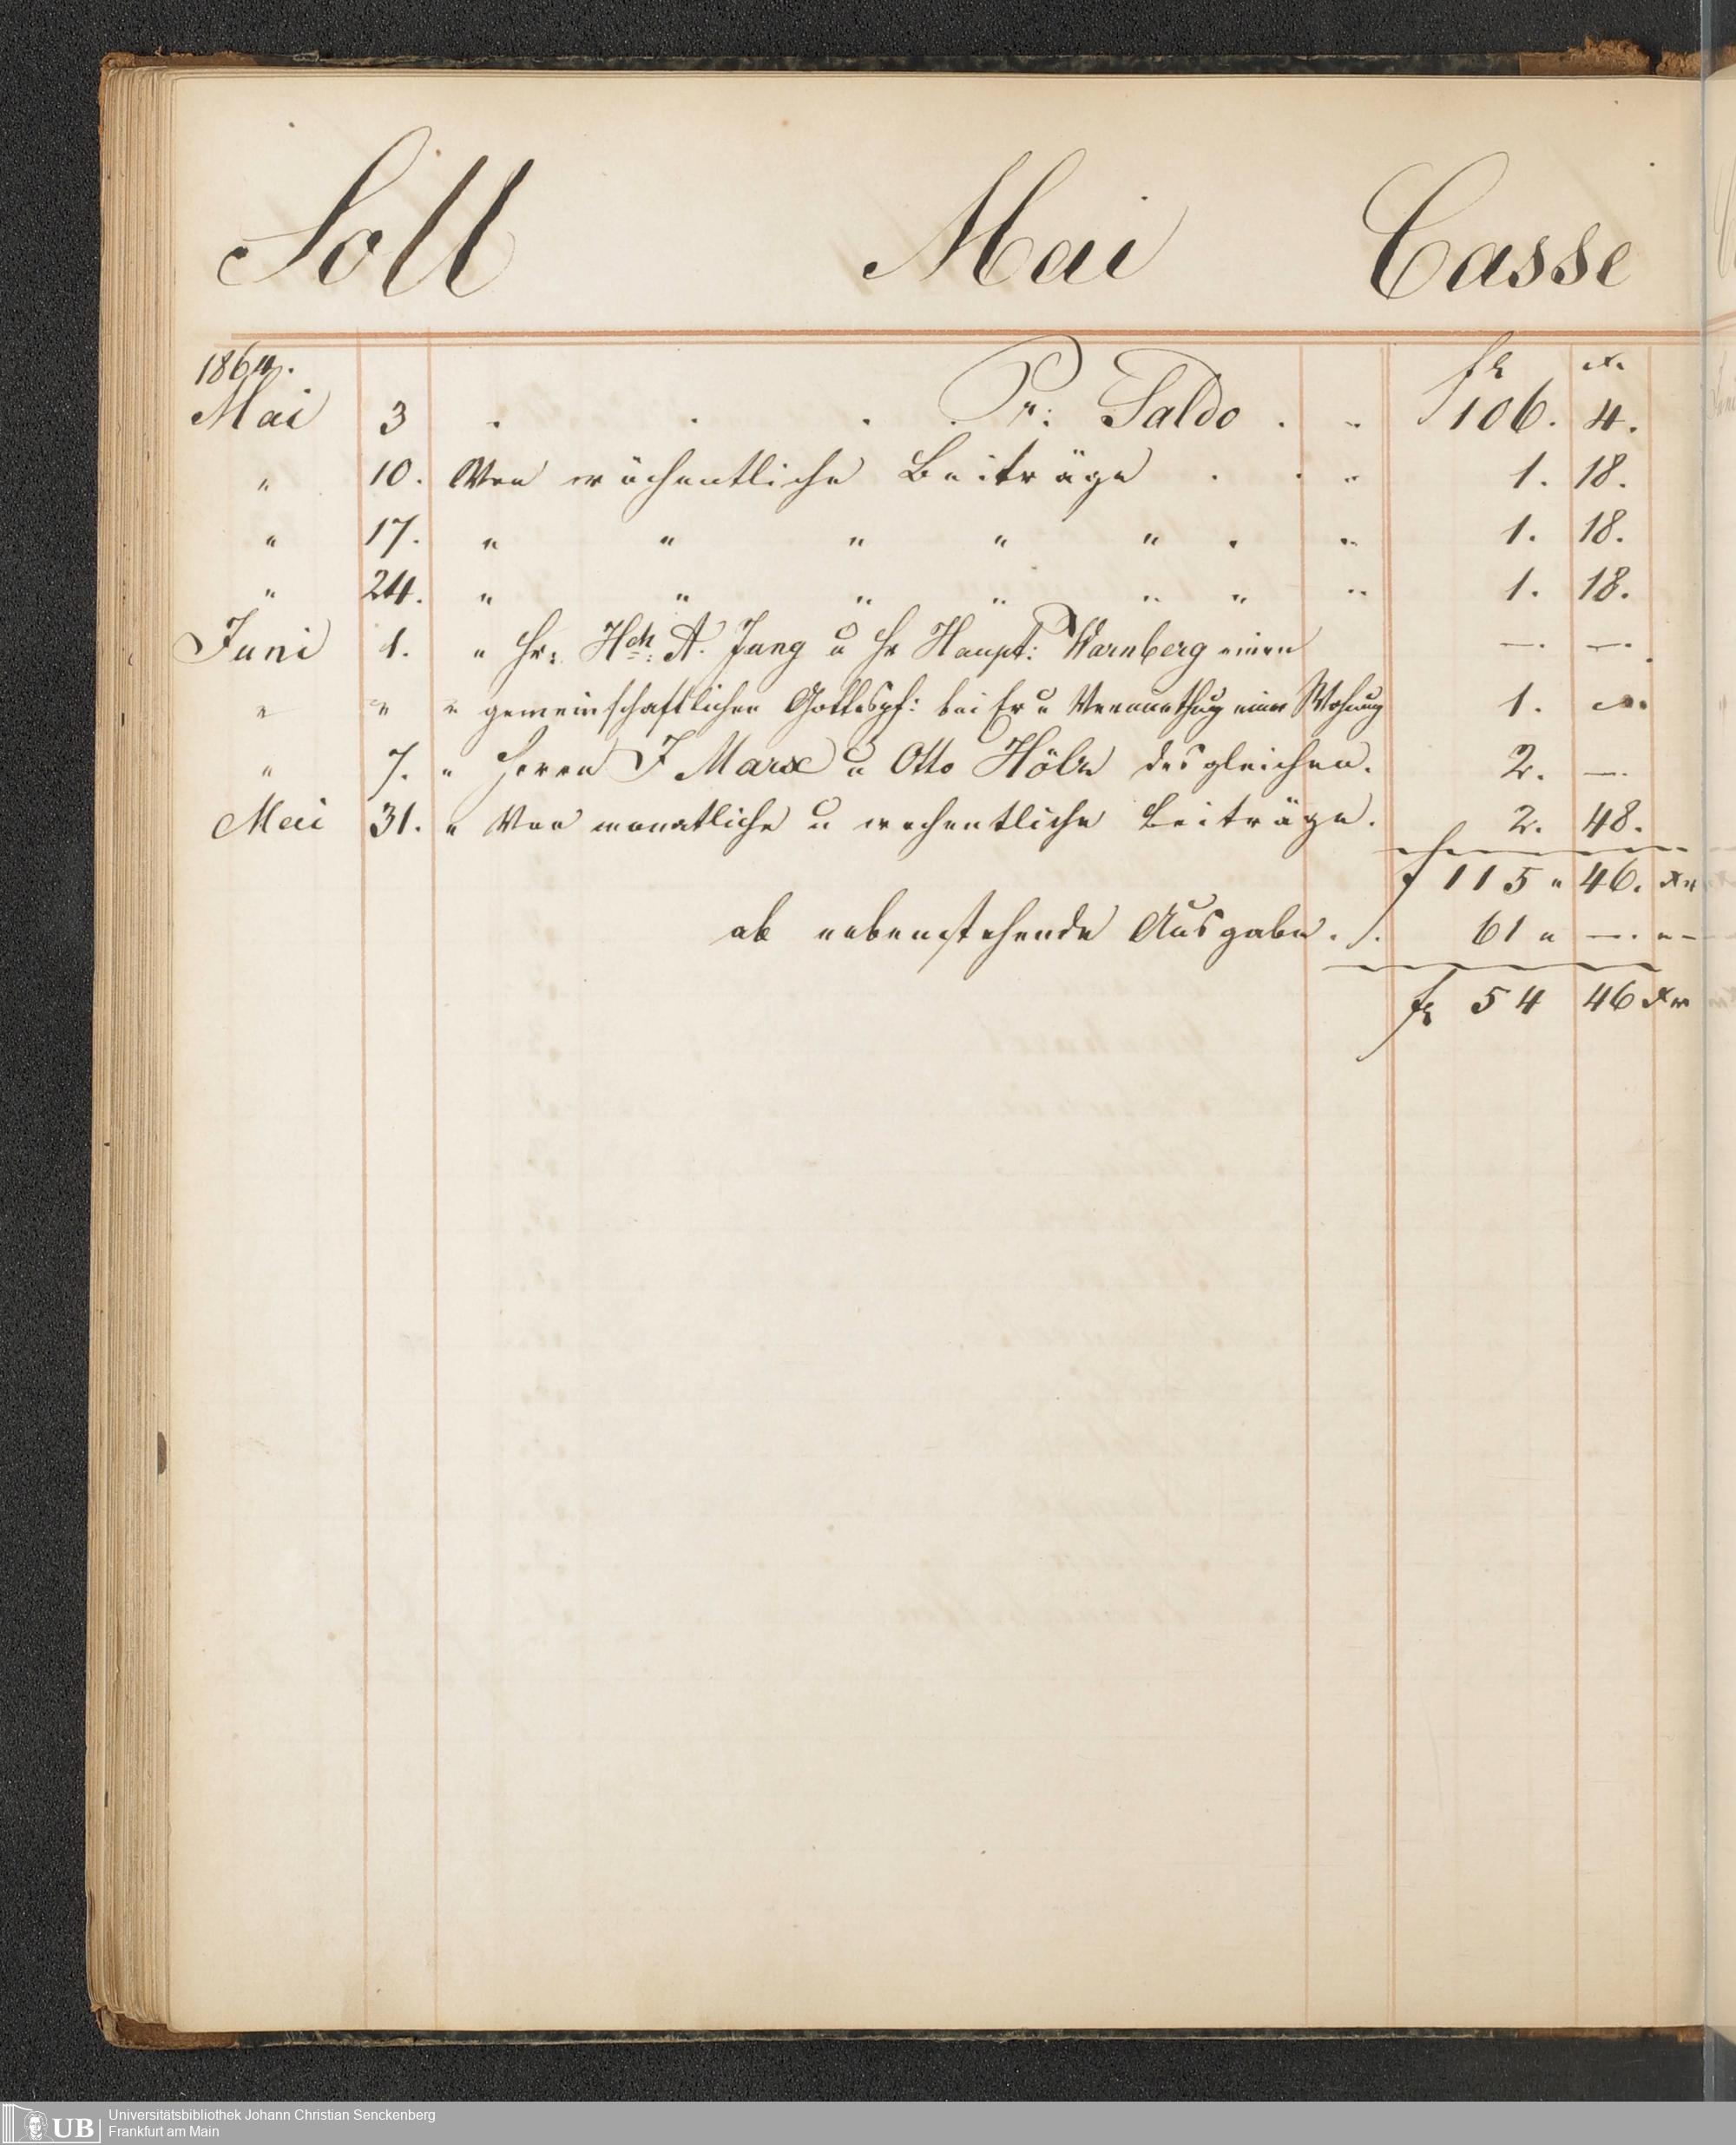 Soll Mai Casse
1864. fl x.
Mai 3 . . . . Pr: Saldo . „ 106. 4.
„ 10. Von wöchentliche Beiträge . . „ 1. 18.
„ 17. „ „ „ „ „ . „ 1. 18.
„ 24. „ „ „ „ „ „ „ 1. 18.
Juni 1. „ Hr: Hch: A. Jung u Hr Haupt: Warnberg einen —. —.
„ „ „ gemeinschaftlichen Gottespf: bei Er u Vermiethug einer Wohnung 1. —.
„ 7. „ Herrn J Marx u Otto Hölz desgleichen. 2. —.
Mai 31. „ Von monatliche u wochentliche Beiträge. 2. 48.
f 115 „ 46. xr
ab nebenstehende Ausgabe. /. 61 „ —. „ –
fl 54 46 xr
Universitätsbibliothek Johann Christian Senckenberg
UB Frankfurt am Main